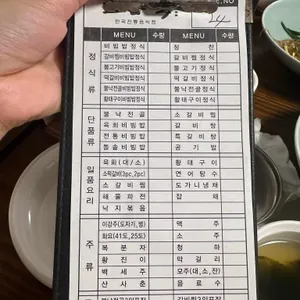 E, NO
24
한국전통음식점
MENU 수량 MENU 수량
정식류
비빔밥정식 정찬
갈비찜비빔밥정식 갈비찜정식
불고기비빔밥정식 불고기정식
떡갈비비빔밥정식 떡갈비정식
불낙전골비빔밥정식 불낙전골정식
황태구이비빔밥정식 황태구이정식
단품류
불낙전골 소갈비찜
육회비빔밥 갈비찜
전통비빔밥 특갈비탕
돌솥비빔밥 공기밥
일품요리
육회(대/소) 황태구이
소떡갈비(3pc,2pc) 연어탕수
소갈비찜 도가니냉채
해물파전 잡채
낙지볶음
주류
이강주(도자기,병) 맥주
화요(41도,25도) 소주
복분자 청하
황진이 막걸리
백세주 모주(대,소,잔)
산사춘 음료수